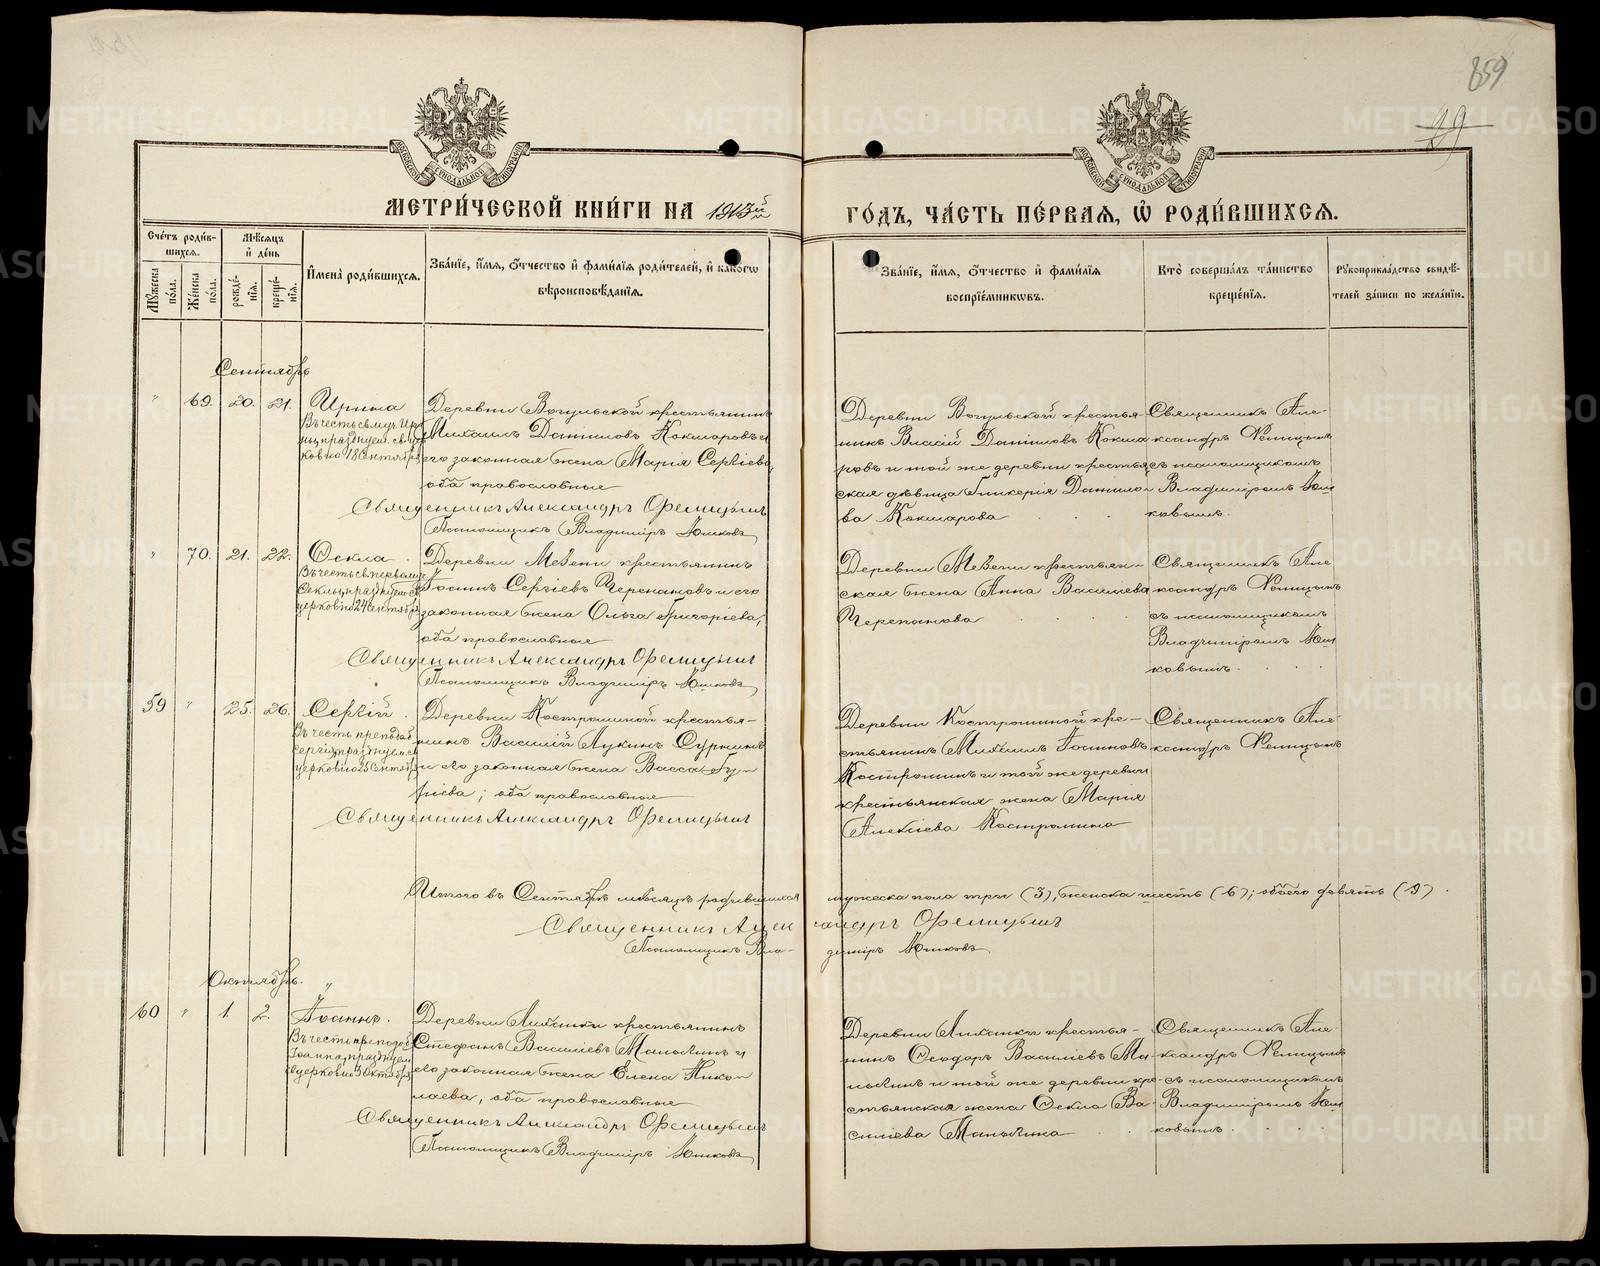 859
29
МЕТРИ́ЧЕСКОЙ КНИ́ГИ НА 1913й
ГО́ДЪ, ЧА́СТЬ ПЕ́РВАЯ, Ѡ РОДИ́ВШИХСЯ.
Сче́тъ роди́в-
шихся.
Мѣ́сяцъ
и҆ де́нь
Му́жеска по́ла.
Же́нска по́ла.
рожде́-
нїя.
креще́-
нїя.
И҆мена̀ роди́вшихся.
Зва́нїе, и҆́мя, ѻ҆́тчество и҆ фами́лїя роди́телей, и҆ како́гѡ
вѣроисповѣ́данїя.
Зва́нїе, и҆́мя, ѻ҆́тчество и҆ фами́лїя
воспрїе́мниковъ.
Кто̀ соверша́лъ та́инство
креще́нїя.
Рꙋкоприкла́дство свидѣ́-
телей за́писи по жела́нїю.
Сентябрь
" 69. 20. 21. Ирина
Въ честь св. муч. Ири
ны, празднуем. св. цер
ковію 18 Сентября
Деревни Вогульской крестьянинъ
Михаилъ Даниловъ Кокшаровъ и
его законная жена Марія Сергіева,
оба православные
Священникъ Александръ Ѳелицынъ
Псаломщикъ Владиміръ Юшковъ
Деревни Вогульской крестья-
нинъ Власій Даниловъ Кокша
ровъ и той же деревни крестьян
ская дѣвица Гликерія Данило-
ва Кокшарова
Священникъ Але-
ксандръ Ѳелицынъ
съ псаломщикомъ
Владиміромъ Юш
ковымъ.
" 70. 21. 22. Ѳекла
Въ честь св. первомуч.
Ѳеклы, празднуем. св.
церковію 24 Сентября
Деревни Мезени крестьянинъ
Іоаннъ Сергіевъ Черепановъ и его
законная жена Ольга Григоріева,
оба православные
Священникъ Александръ Ѳелицынъ
Псаломщикъ Владиміръ Юшковъ
Деревни Мезени крестьян-
ская жена Анна Васильева
Черепанова
Священникъ Але
ксандръ Ѳелицынъ
съ псаломщикомъ
Владиміромъ Юш
ковымъ.
59 " 25. 26. Сергій.
Въ честь преподоб
Сергія, празднуем. св
церковію 25 Сентября
Деревни Костроминой крестья-
нинъ Василій Лукинъ Суринъ
и его законная жена Васса Гу-
ріева; оба православные
Священникъ Александръ Ѳелицынъ
Деревни Костроминой кре-
стьянинъ Михаилъ Іоанновъ
Костроминъ и той же деревни
крестьянская жена Марія
Алексіева Костромина
Священникъ Але
ксандръ Ѳелицынъ
Итого въ Сентябрѣ мѣсяцѣ родившихся мужеска пола три (3), женска шесть (6); обоего девять (9).
Священникъ Александръ Ѳелицынъ
Псаломщикъ Владиміръ Юшковъ
Октябрь.
60 " 1. 2. Іоаннъ.
Въ честь преподоб
Іоанна, празднуем
церковію 3 Октября
Деревни Стефанъ Василіевъ
его законная жена Елена Нико-
лаева, оба православные
Священникъ Александръ Ѳелицынъ
Псаломщикъ Владиміръ Юшковъ
крестья-
нинъ Ѳеодоръ Василіевъ
и той же деревни кре-
стьянская жена Ѳекла Ва-
силіева
Священникъ Але-
ксандръ Ѳелицынъ
съ псаломщикомъ
Владиміромъ Юш
ковымъ.
METRIKI.GASO-URAL.RU